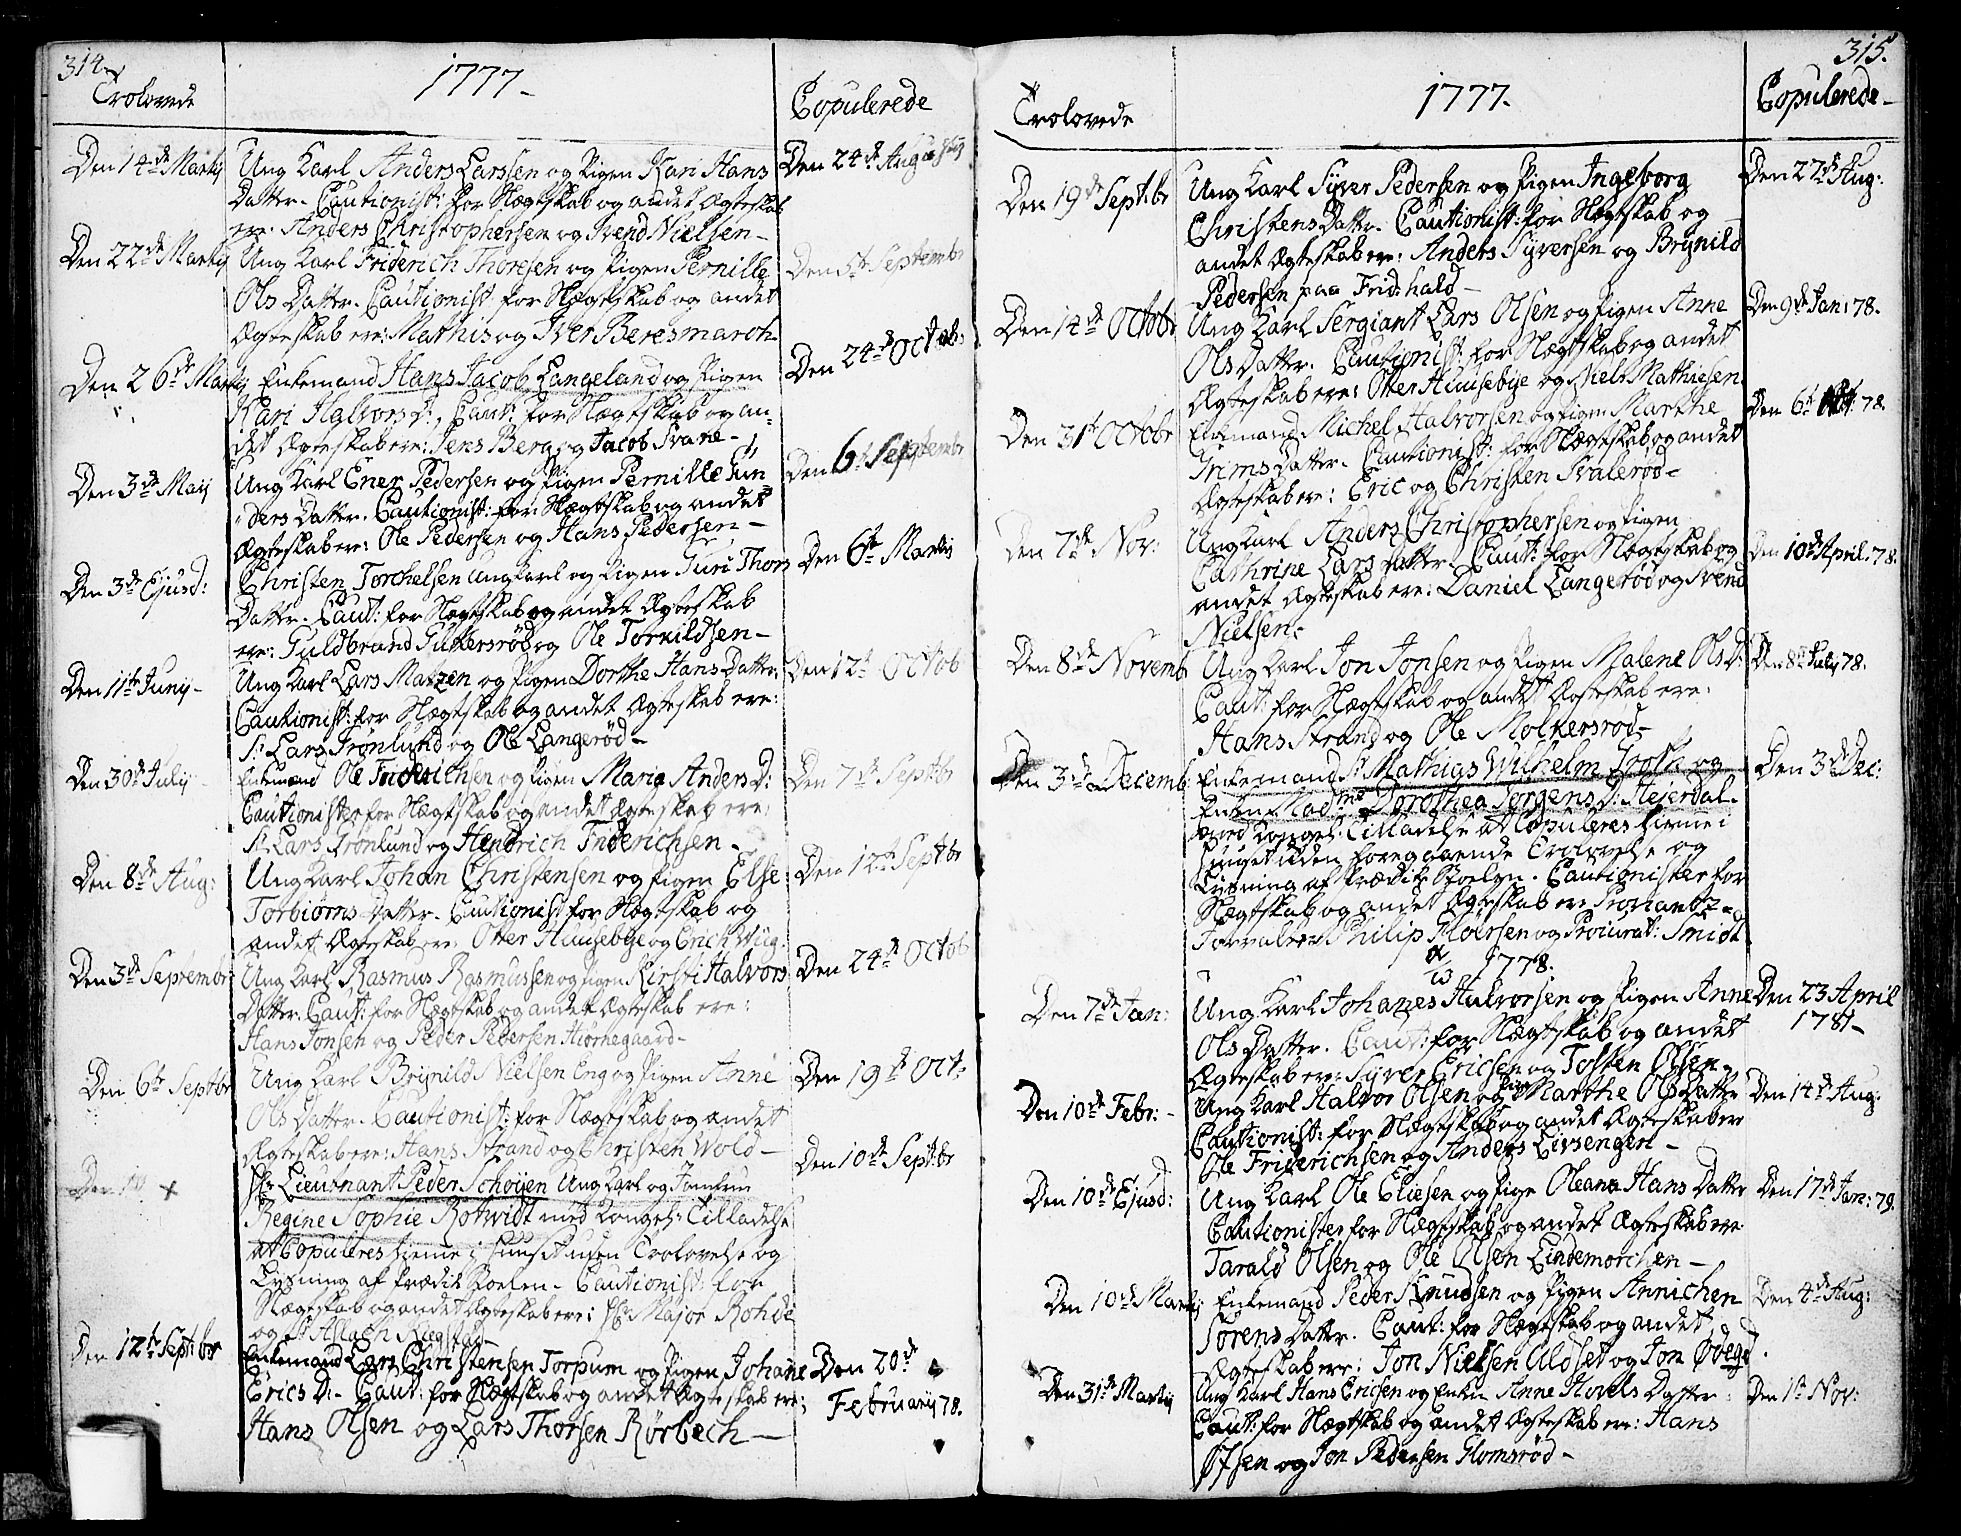 314.
Trolovede
1777-
Copulerede
Den 14de Martij
Ung Karl Anders Larssen og Pigen Kari Hans
Datter. Cautionist: for Slægtskab og andet Ægteskab
ere. Anders Christophersen og Svend Nielsen-
Den 24de Augusti
Den 22de Martij
Ung Karl Friderich Thoresen og Pigen Pernille
Ols Datter. Cautionist: for Slægtskab og andet
Ægteskab ere: Mathis og Iver Beresmarch
Den 5te Septembr
Den 26de Martij
Enkemand Hans Jacob Langeland og Pigen
Kari Halvors D:, Caut: for Slægtskab og an-
det Ægteskab ere: Jens Berg og Jacob Svane-
Den 24de Octob:
Den 3de Maij
Ung Karl Ener Pedersen og Pigen Pernille Gun
ders Datter. Cautionist: for Slægtskab og andet
Ægteskab ere: Ole Pedersen og Hans Pedersen-
Den 6te Septembr
Den 3de Ejusd:
Christen Torchelsen ung Karl og Pigen Guri Thors
Datter. Caut: for Slægtskab og andet Ægteskab
ere: Guldbrand Guttersrød og Ole Torkildsen-
Den 6te Martij
Den 11te Junij-
Ung Karl Lars Matzen og Pigen Dorthe Hans Datter
Cautionist: for Slægtskab og andet Ægteskab ere:
Sr. Lars Grønlund og Ole Langerød-
Den 12te Octob
Den 30te Julij
Enkemand Ole Friderichsen og Pigen Maria Anders D:
Cautionister for Slægtskab og andet Ægteskab ere:
Sr. Lars Grønlund og Hendrich Friderichsen-
Den 7de Septbr
Den 8de Aug:
Ung Karl Johan Christensen og Pigen Else
Torbiørns Datter. Cautionist for Slægtskab og
andet Ægteskab ere: Otter Huusebye og Erich Wiig.
Den 12te Septbr
Den 3de Septembr
Ung Karl Rasmus Rasmussen og Pigen Kirsti Halvors
Datter. Caut: for Slægtskab og andet Ægteskab ere:
Hans Jonsen og Peder Pedersen Hiørnegaard-
Den 24de Octob
Den 6te Septbr
Ung Karl Brynild Nielsen Eng og Pigen Anne
Ols Datter. Cautionist: for Slægtskab og andet
Ægteskab ere: Hans Strand og Christen Wold-
Den 19de Oct:
Den +
Hr. Lieutnant Peder Schøyen Ung Karl og Jomfru
Regine Sophie Rotwidt med Kongel: Tilladelse
at Copuleres hieme i Huuset uden Trolovelse og
Lysning af Prædike Stoelen- Cautionist: for
Slægtskab og andet Ægteskab ere: Hr. Major Rohde
og Sr Aslach
Den 10de Septbr
Den 12te Septbr
Enkemand Lars Christensen Torpum og Pigen Johane
Erics D:- Caut: for Slægtskab og andet Ægteskab ere;
Hans Olsen og Lars Thorsen Rørbech-
Den 20de
Februarij 78.
315.
Trolovede
1777.
Copulerede-
Den 19de Septbr
Ung Karl Syver Pedersen og Pigen Ingeborg
Christens Datter. Cautionist: for Slægtskab og
andet Ægteskab ere: Anders Syversen og Brynild
Pedersen paa Frid:hald-
Den 22de Aug:
Den 14de Octobr
Ung Karl Sergiant Lars Olsen og Pigen Anne
Ols Datter. Cautionist: for Slægtskab og andet
Ægteskab ere: Otter Huusebye og Niels Mathiesen.
Den 9de Jan: 78.
Den 31te Octobr
Enkemand Michel Halvorsen og Pigen Marthe
Grims Datter. Cautionist: for Slægtskab og andet
Ægteskab ere: Eric og Christen Svalerød-
Den 6te 78.
Den 7de Nov:
Ung Karl Anders Christophersen og Pigen
Cathrine Lars Datter. Caut: for Slægtskab og
andet Ægteskab ere: Daniel Langerød og Svend
Nielsen.
Den 10de April. 78.
Den 8de Novemb
Ung Karl Jon Jonsen og Pigen Malene Ols D:
Caut: for Slægtskab og andet Ægteskab ere:
Hans Strand og Ole Molkersrød-
Den 8de July 78.
Den 3de Decemb:
Enkemand Sr. Mathias Wilhelm Groth og
Enken Madme Dorothea Jørgens D: Hejerdal-
med Kongel: Tilladelse at Copuleres hieme i
Huuset uden foregaaende Trolovelse og
Lysning af Prædike Stoelen. Cautionister for
Slægtskab og andet Ægteskab ere Proviant-
Forvalter Philip Moersen og Procurat: Smidt
Den 3de Dec:
1778.
Den 7de Jan:
Ung Karl Johanes Halvorsen og Pigen Anne
Ols Datter. Caut: for Slægtskab og andet
Ægteskab ere: Syver Ericsen og Tosten Olsen-
Den 23 April
1781-
Den 10de Febr:-
Ung Karl Halvor Olsen og Pigen Marthe Ols Datter
Cautionist: for Slægtskab og andet Ægteskab ere
Ole Friderichsen og Anders Livsengen-
Den 14de Aug:
Den 10de Ejusd:
Ung Karl Ole Eliesen og Pige Oleana Hans Datter
Cautionister for Slægtskab og andet Ægteskab ere
Tarald Olsen og Ole Olsen Lindemarchen-
Den 17de Jan: 79.
Den 10de Martij
Enkemand Peder Knudsen og Pigen Annichen
Sørens Datter. Caut: for Slægtskab og andet
Ægteskab ere: Jon Nielsen Aldset og Jon Ødegd.
Den 4de Aug:
Den 31te Martij
Ung Karl Hans Ericsen og Enken Anne Hovels Datter.
Caut: for Slægtskab og andet Ægteskab ere: Hans
Olsen og Jon Pedersen Glomsrød-
Den 1te Nov: